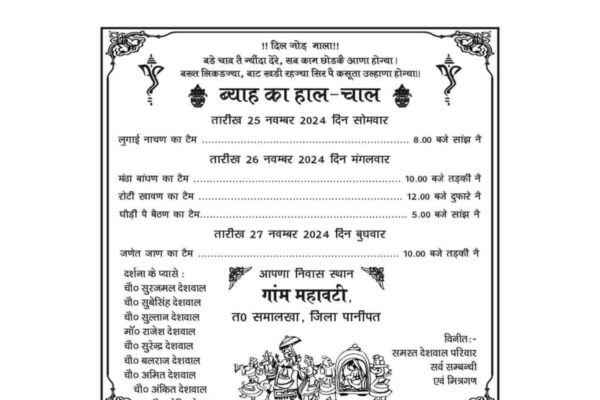 !! दिल जोड़ माला!!
बडे चाव तै न्यौंदा देरे, सब काम छोडकै आणा होग्या।
बख्त लिकडज्या, बाट खडी रहज्या सिर पै कसूता उल्हाणा होग्या।।
ब्याह का हाल-चाल
तारीख 25 नवम्बर 2024 दिन सोमवार
लुगाई नाचण का टैम ........ 8.00 बजे सांझ नै
तारीख 26 नवम्बर 2024 दिन मंगलवार
मंढा बांधण का टैम ........ 10.00 बजे तड़की नै
रोटी खावण का टैम ........ 12.00 बजे दुफारे नै
घौड़ी पै बैठण का टैम ........ 5.00 बजे सांझ नै
तारीख 27 नवम्बर 2024 दिन बुधवार
जणेत जाण का टैम ........ 10.00 बजे तड़की नै
दर्शना के प्यासे :
चौ० सुरजमल देशवाल
चौ० सुबेसिंह देशवाल
चौ० सुल्तान देशवाल
मॉ० राजेश देशवाल
चौ० सुरेन्द्र देशवाल
चौ० बलराज देशवाल
चौ० अमित देशवाल
चौ० अंकित देशवाल
आपणा निवास स्थान
गांम महावटी,
त० समालखा, जिला पानीपत
विनीत:-
समस्त देशवाल परिवार
सर्व सम्बन्धी
एवं मित्रगण